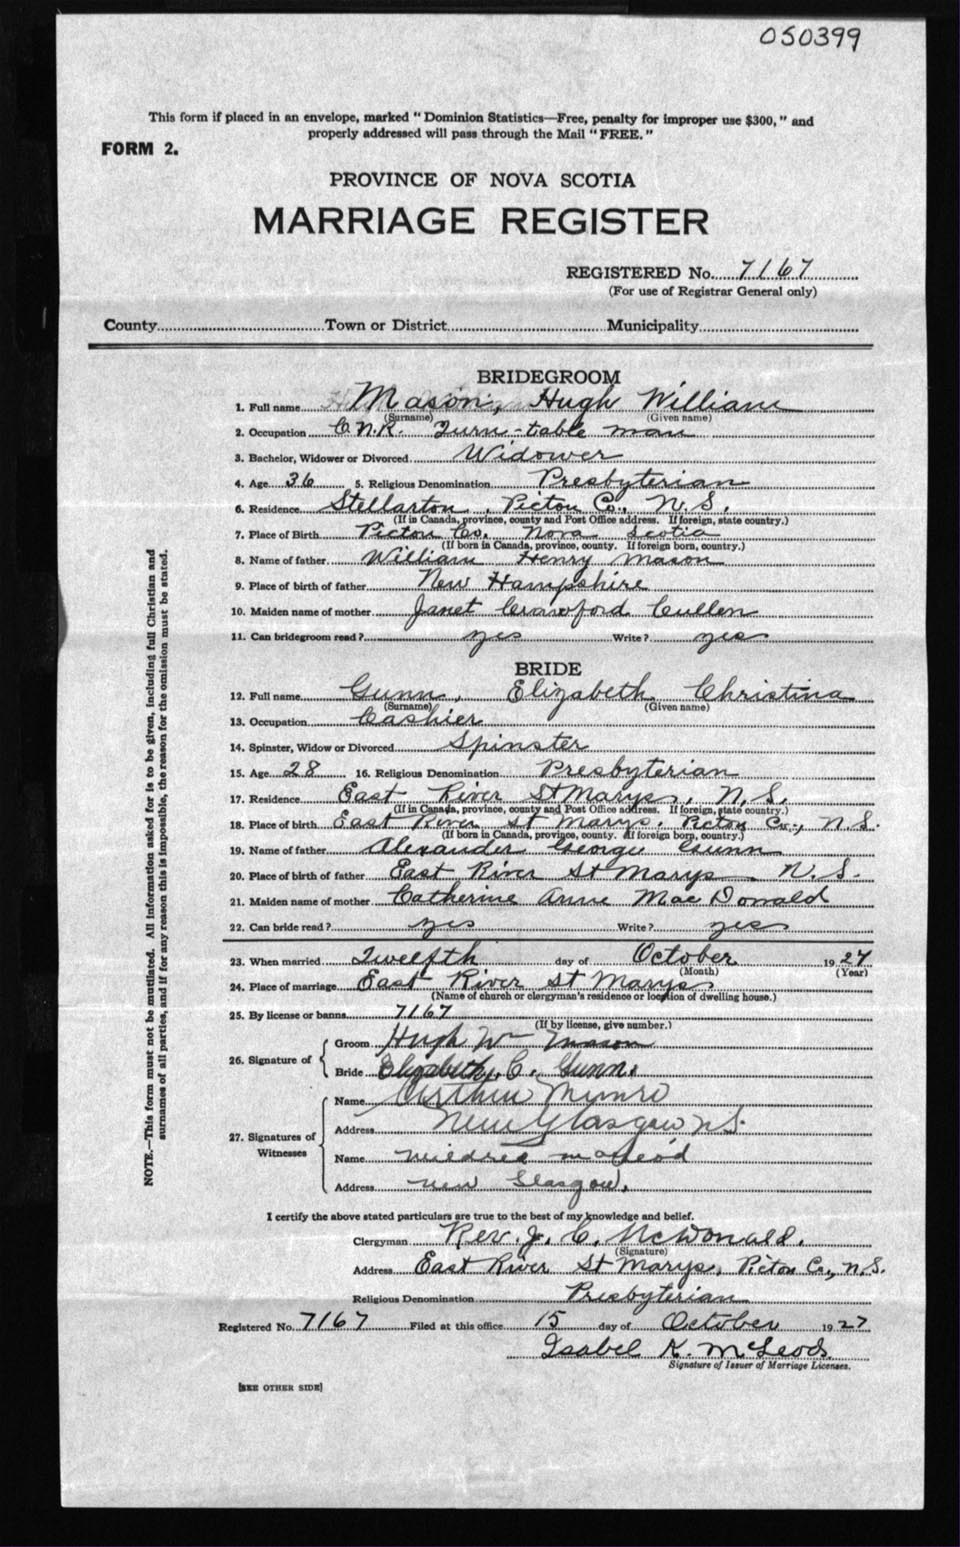 050399
This form if placed in an envelope, marked "Dominion Statistics—Free, penalty for improper use $300," and
properly addressed will pass through the Mail "FREE."
FORM 2.
PROVINCE OF NOVA SCOTIA
MARRIAGE REGISTER
REGISTERED No. 7167
(For use of Registrar General only)
County Town or District Municipality
BRIDEGROOM
1. Full name Mason, Hugh William
(Surname) (Given name)
2. Occupation C.N.R. Turn-table man
3. Bachelor, Widower or Divorced Widower
4. Age 36 5. Religious Denomination Presbyterian
6. Residence Stellarton, Pictou Co., N.S.
(If in Canada, province, county and Post Office address. If foreign, state country.)
7. Place of Birth Pictou Co. Nova Scotia
(If born in Canada, province, county. If foreign born, country.)
8. Name of father William Henry Mason
9. Place of birth of father New Hampshire
10. Maiden name of mother Janet Crawford Cullen
11. Can bridegroom read? yes Write? yes
BRIDE
12. Full name Gunn, Elizabeth Christina
(Surname) (Given name)
13. Occupation Cashier
14. Spinster, Widow or Divorced Spinster
15. Age 28 16. Religious Denomination Presbyterian
17. Residence East River St Marys, N.S.
(If in Canada, province, county and Post Office address. If foreign, state country.)
18. Place of birth East River St Marys, Pictou Co., N.S.
(If born in Canada, province, county. If foreign born, country.)
19. Name of father Alexander George Gunn
20. Place of birth of father East River St Marys N.S.
21. Maiden name of mother Catherine Anne MacDonald
22. Can bride read? yes Write? yes
23. When married Twelfth day of October 1927
(Month) (Year)
24. Place of marriage East River St Marys
(Name of church or clergyman's residence or location of dwelling house.)
25. By license or banns 7167
(If by license, give number.)
26. Signature of
Groom Hugh Wm Mason
Bride Elizabeth C. Gunn.
27. Signatures of Witnesses
Name Arthur Munro
Address New Glasgow N.S.
Name Mildred McLeod
Address New Glasgow.
I certify the above stated particulars are true to the best of my knowledge and belief.
Clergyman Rev. J. C. McDonald.
(Signature)
Address East River St Marys, Pictou Co., N.S.
Religious Denomination Presbyterian
Registered No. 7167 Filed at this office 15 day of October 1927
Isabel K. McLeod.
Signature of Issuer of Marriage Licenses.
[SEE OTHER SIDE]
NOTE.—This form must not be mutilated. All information asked for is to be given, including full Christian and
surnames of all parties, and if for any reason this is impossible, the reason for the omission must be stated.